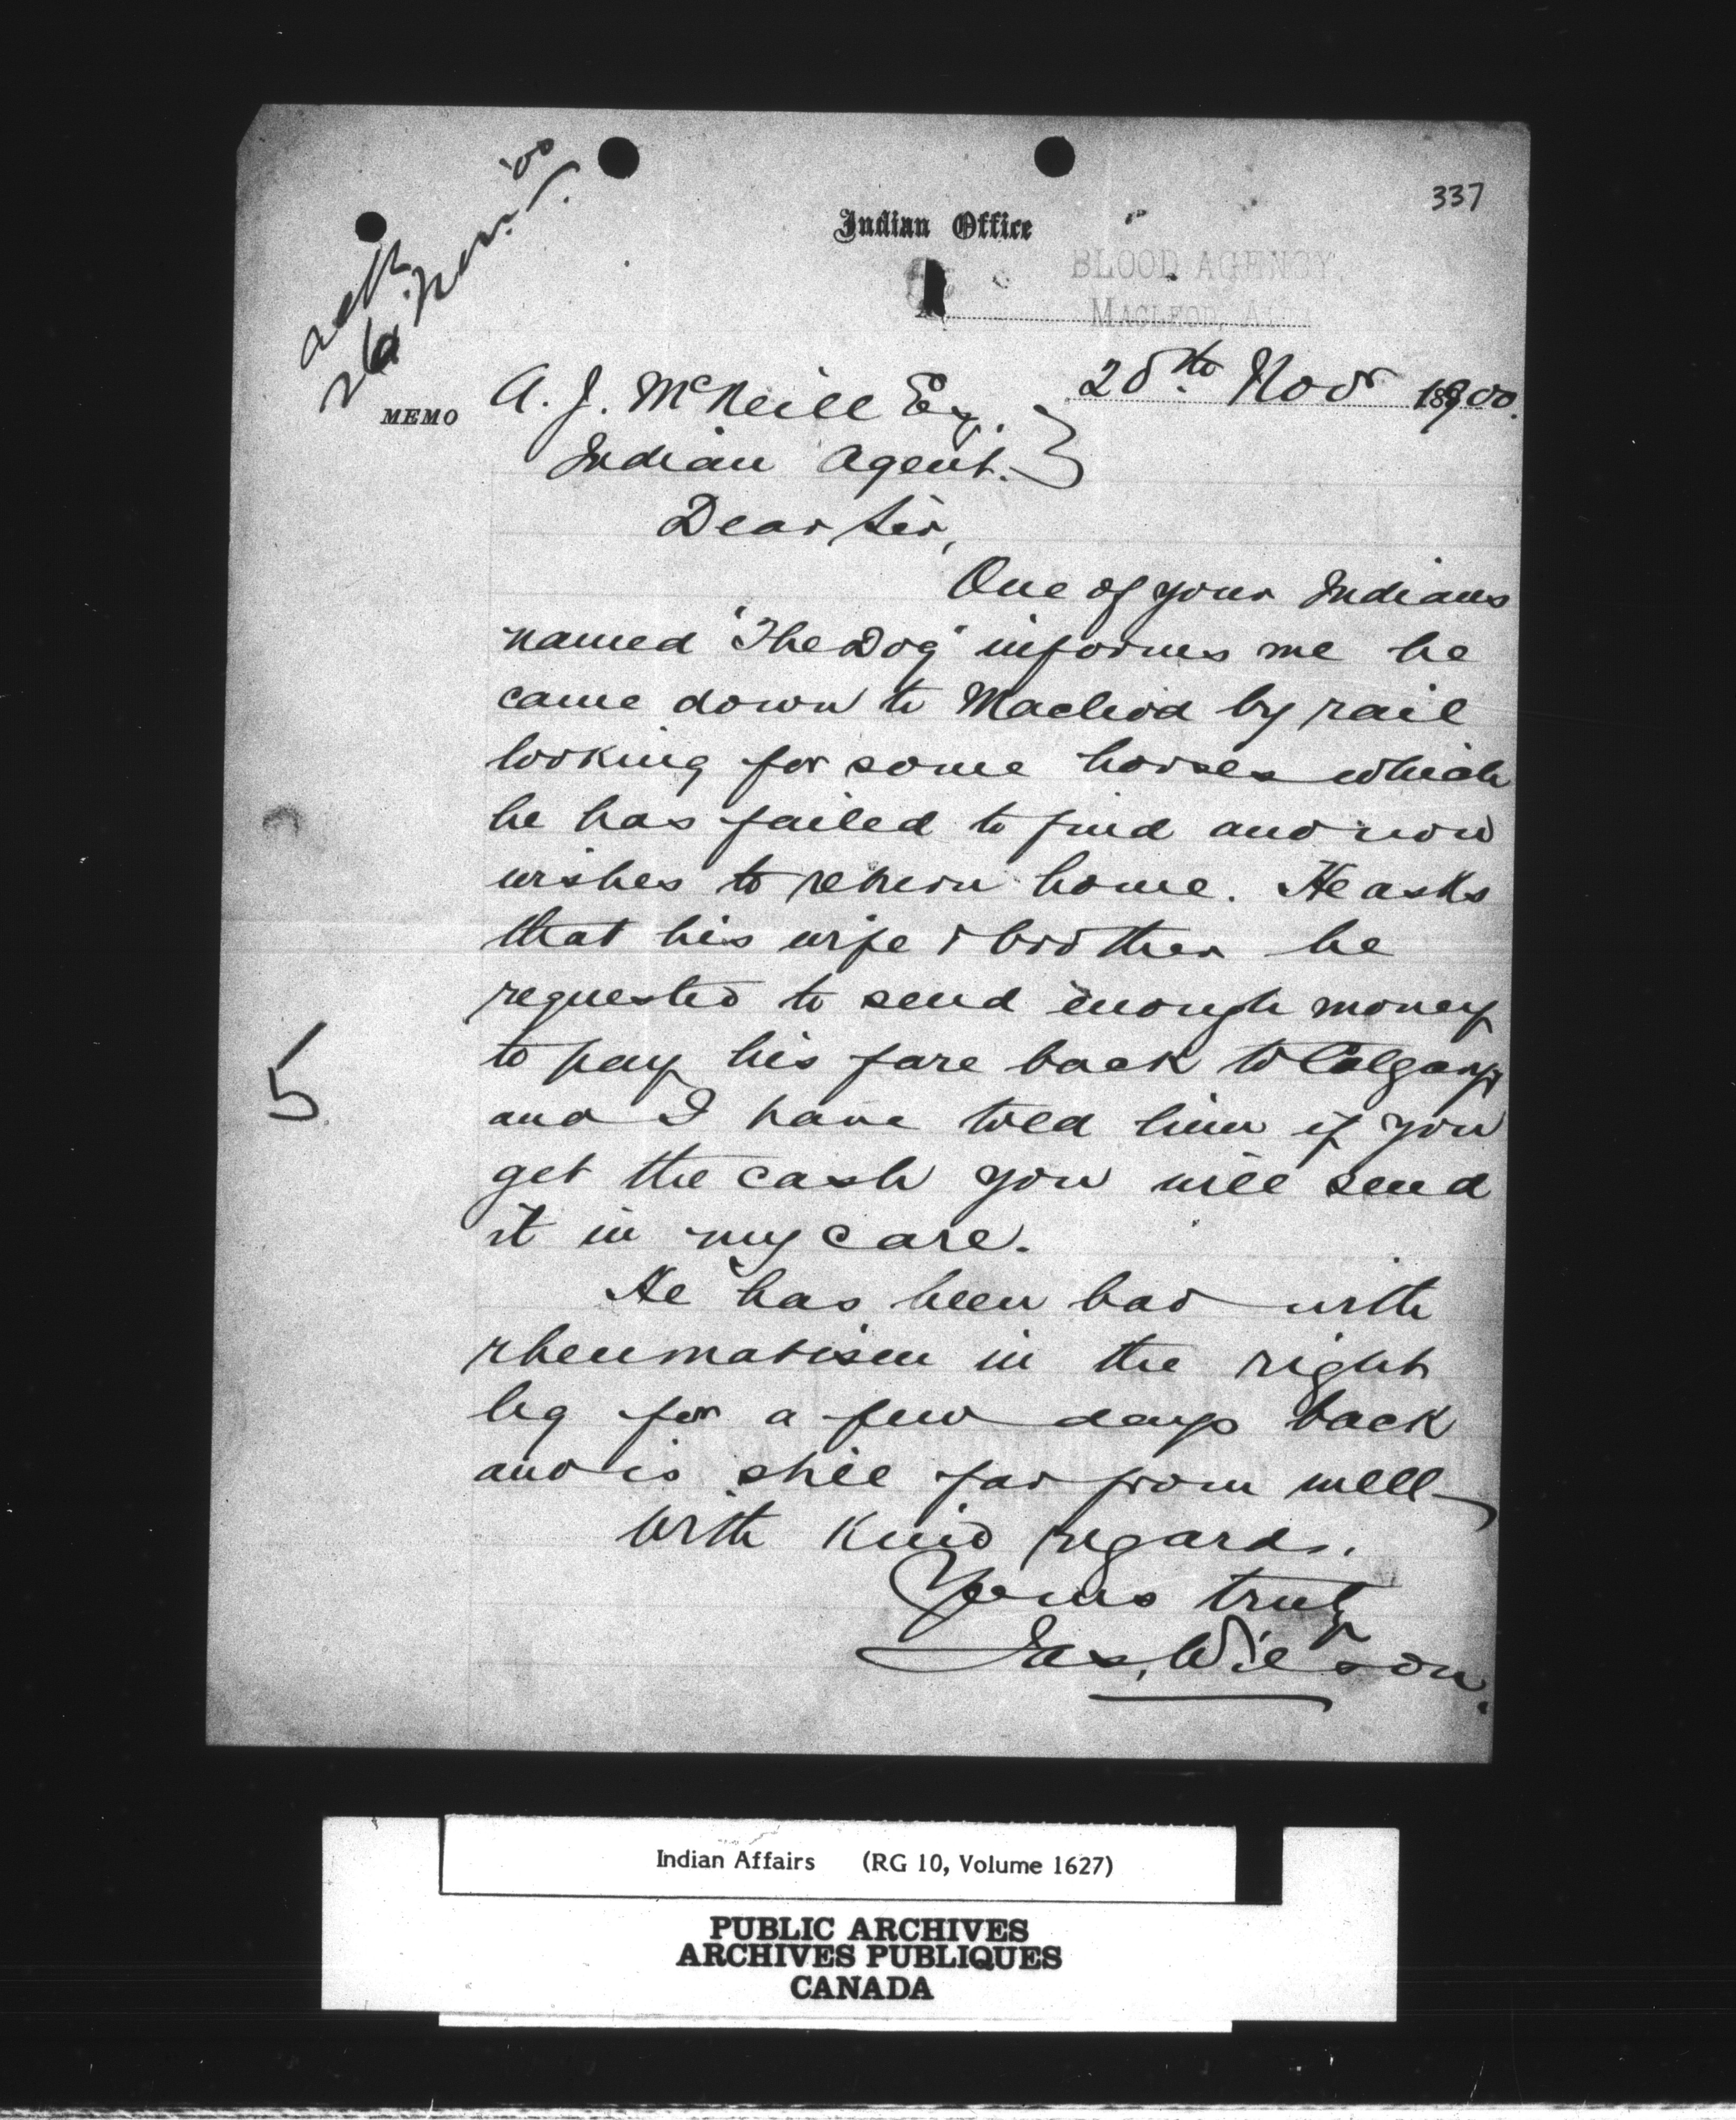 337
Ack
26 Nov. '00
Indian Office
BLOOD AGENCY,
MACLEOD, ALTA
20th Novr 1900.
MEMO A. J. McNeill Esq.
Indian Agent.
Dear Sir,
One of your Indians
named "The Dog" informs me he
came down to Macleod by rail
looking for some horses which
he has failed to find and now
wishes to return home. He asks
that his wife & brother be
requested to send enough money
to pay his fare back to Calgary
and I have told him if you
get the cash you will send
it in my care.
He has been bad with
rheumatism in the right
leg for a few days back
and is still far from well
With kind regards.
Yours truly
Jas. Wilson.
5
Indian Affairs (RG 10, Volume 1627)
PUBLIC ARCHIVES
ARCHIVES PUBLIQUES
CANADA